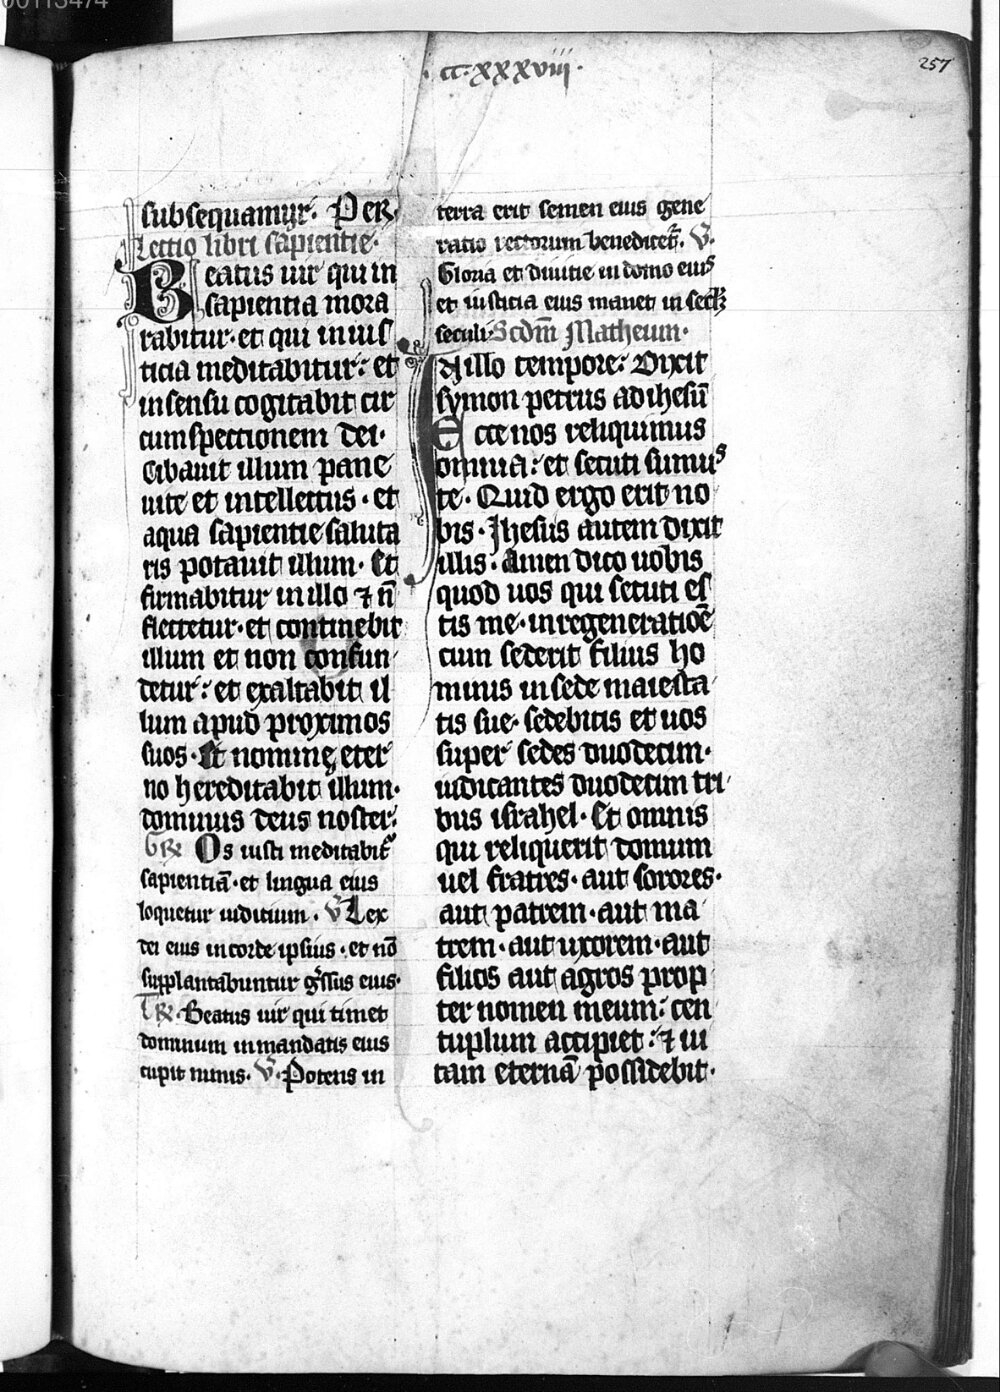 00113474
·cc·xxxviii·
257
subsequamur. Per
Lectio libri sapientie·
Beatus uir qui in
sapientia mora
rabitur·et qui in ius
ticia meditabitur: et
in sensu cogitabit cir
cumspectionem dei·
Cibauit illum pane
uite et intellectus·et
aqua sapientie saluta
ris potauit illum·Et
firmabitur in illo ⁊ nō
flectetur·et continebit
illum et non confun
detur: et exaltabit il
lum apud proximos
suos·Et nomine eter
no hereditabit illum·
dominus deus noster.
GR Os iusti meditabit᷑
sapientiā·et lingua eius
loquetur iuditium·V Lex
dei eius in corde ipsius·et nō
supplantabuntur gͥssus eius·
TR·Beatus uir qui timet
dominum in mandatis eius
cupit nimis·V·Potens in
terra erit semen eius gene
ratio rectorum benedicet᷑. V.
Gloria et diuitie in domo eiꝰ
et iusticia eius manet in secl̄m
seculi·Scdm̄ Matheum·
In illo tempore: Dixit
symon petrus ad ihesū
Ecce nos reliquimus
omnia: et secuti sumuˢ
te·Quid ergo erit no
bis·Jhesus autem dixit
illis·Amen dico uobis
quod uos qui secuti es
tis me·in regeneratiōe
cum sederit filius ho
minis in sede maiesta
tis sue·sedebitis et uos
super sedes duodecim·
iudicantes duodecim tri
bus israhel·Et omnis
qui reliquerit domum
uel fratres·aut sorores·
aut patrem·aut ma
trem·aut uxorem·aut
filios aut agros prop
ter nomen meum: cen
tuplum accipiet: ⁊ ui
tam eternā possidebit·